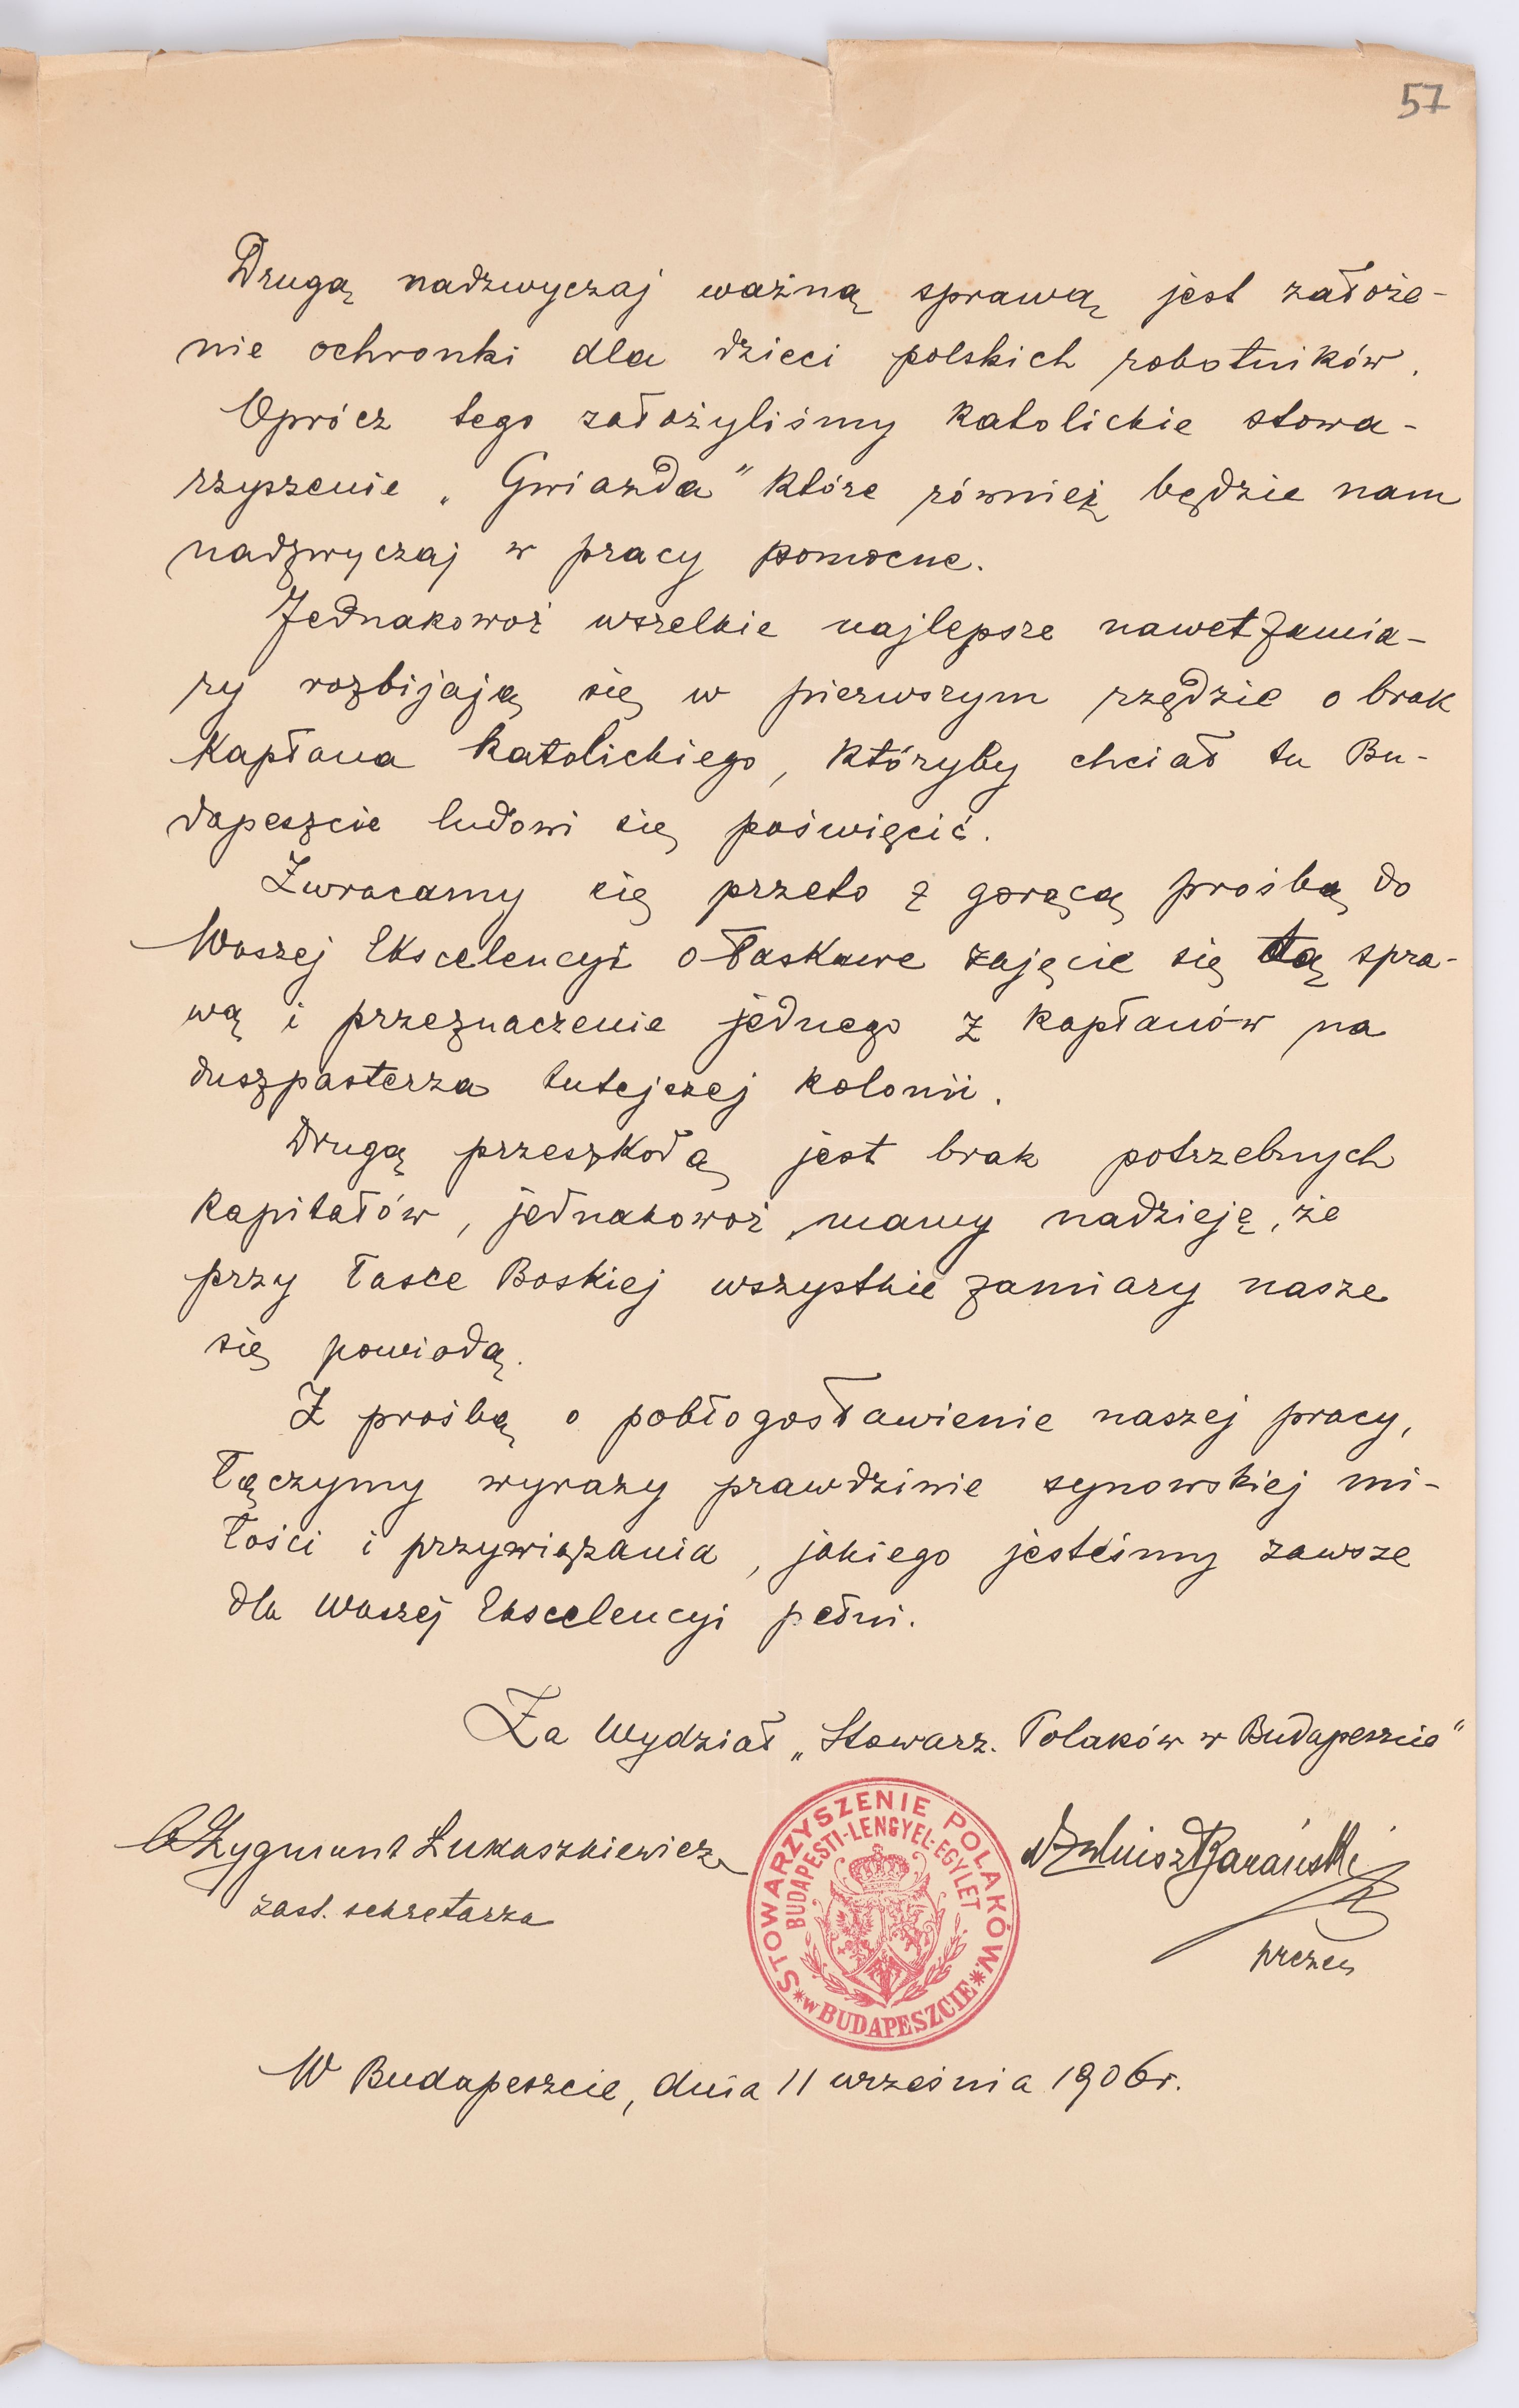 57
Drugą nadzwyczaj ważną sprawą jest założe-
nie ochronki dla dzieci polskich robotników.
Oprócz tego założyliśmy katolickie stowa-
rzyszenie „Gwiazda" które również będzie nam
nadzwyczaj w pracy pomocne.
Jednakowoż wszelkie najlepsze nawet zamia-
ry rozbijają się w pierwszym rzędzie o brak
kapłana katolickiego, któryby chciał tu Bu-
dapeszcie ludowi się poświęcić.
Zwracamy się przeto z gorącą prośbą do
Waszej Ekscelencyi o łaskawe zajęcie się tą spra-
wą i przeznaczenie jednego z kapłanów na
duszpasterza tutejszej kolonii.
Drugą przeszkodą jest brak potrzebnych
kapitałów, jednakowoż mamy nadzieję, że
przy łasce Boskiej wszystkie zamiary nasze
się powiodą.
Z prośbą o pobłogosławienie naszej pracy,
łączymy wyrazy prawdziwie synowskiej mi-
łości i przywiązania, jakiego jesteśmy zawsze
dla Waszej Ekscelencyi pełni.
Za Wydział „Stowarz. Polaków w Budapeszcie"
Zygmunt Łukaszkiewicz
zast. sekretarza
STOWARZYSZENIE POLAKÓW
BUDAPESTI-LENGYEL-EGYLET
* w BUDAPESZCIE *
Juliusz Barański
prezes
W Budapeszcie, dnia 11 września 1906 r.